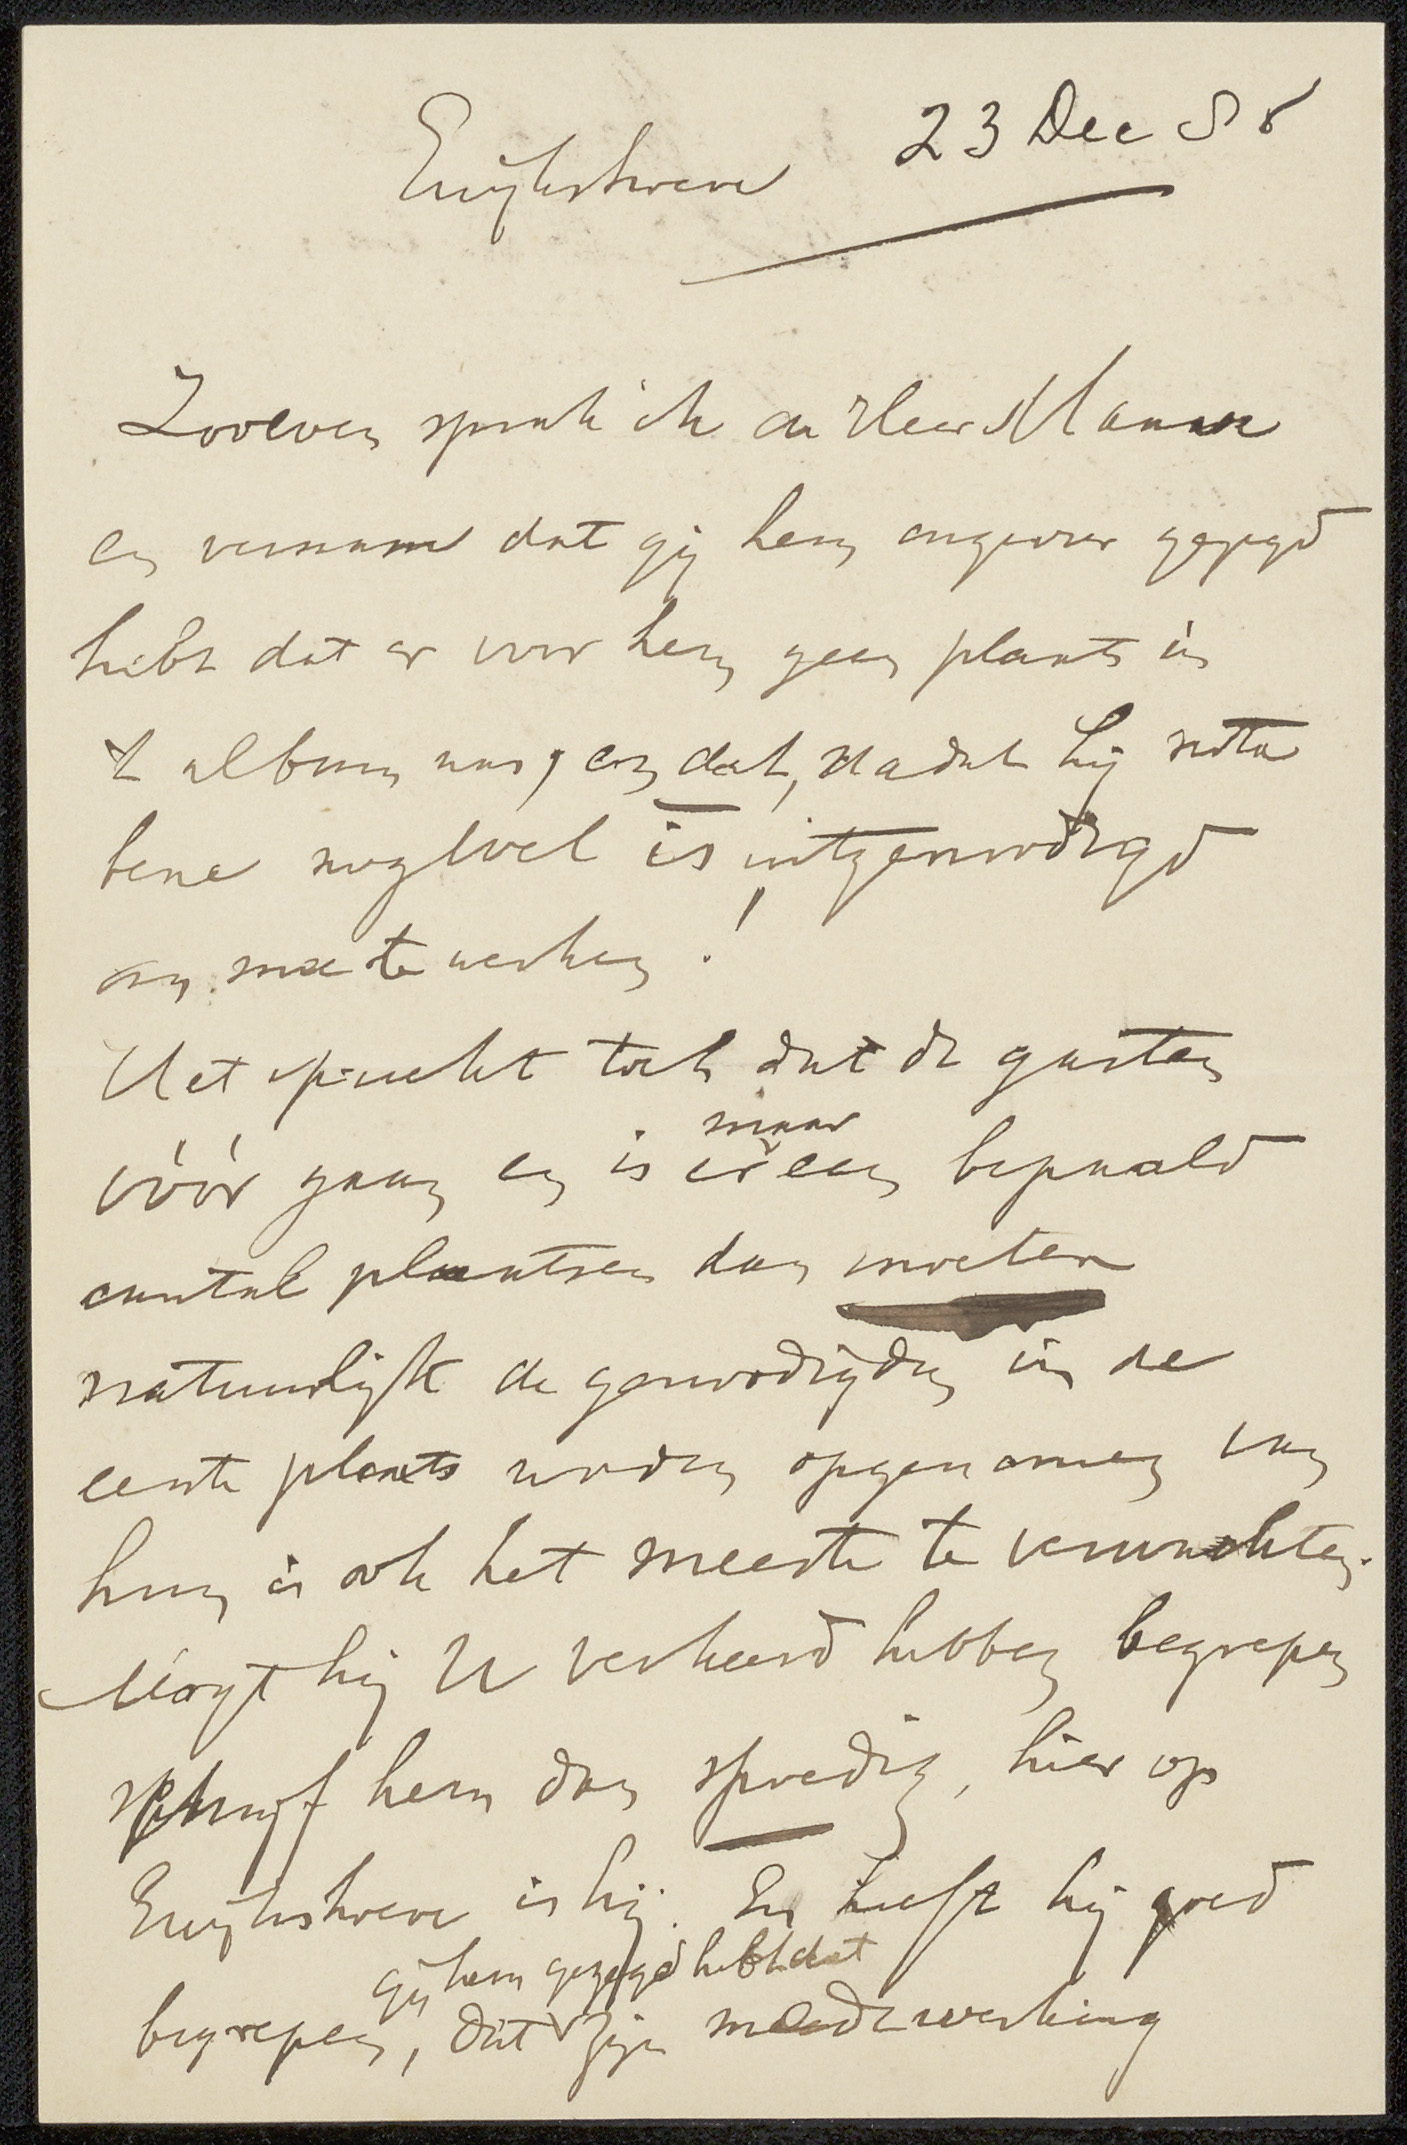 Euijkshoeve 23 Dec 88
Zooeven sprak ik de Heer Mauve
en vernam dat gij hem ongeveer gezegd
hebt dat er voor hem geen plaats in
't album was, en dat, nadat hij nota
bene nog wel is uitgenoodigd
om mee te werken!
Het spreekt toch dat de gasten
vóór gaan en is er maar een bepaald
aantal plaatsen dan moeten
natuurlijk de genoodigden in de
eerste plaats worden opgenomen van
hun is ook het meeste te verwachten.
Mogt hij U verkeerd hebben begrepen
schrijf hem dan spoedig, hier op
Euijkshoeve is hij. En heeft hij goed
begrepen, dat gij hem gezegd hebt dat zijn medewerking